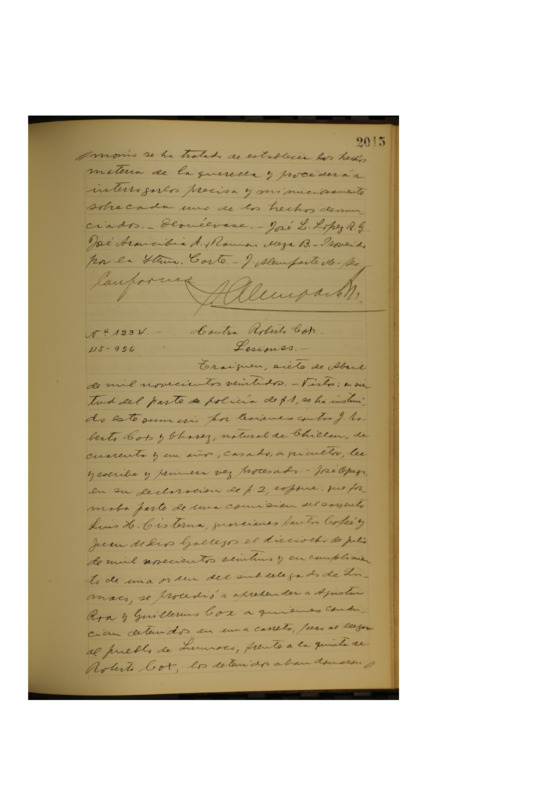 2015
se ha tratado de establecer los hechos
materia de la querella y procederá a
interrogarlos precisa y minuciosamente
sobre cada uno de los hechos denun-
ciados. - Devuélvase. - José L. López R. G.
José Arancibia A. Ramon Mega B. - Proveido
por la Iltma. Corte. - J. Alemparte
Conforme
Nº 1234 - Contra Roberto Cox.
Lesiones. -
Traiguen, siete de Abril
de mil novecientos veintidos. - Vistos: en vir-
tud del parte de policía de f 1, se ha instrui-
do este sumario por lesiones contra J. Ro-
berto Cox y Chavez, natural de Chillan, de
cuarenta y un años, casado, agricultor, lee
y escribe y primera vez procesado. - José
en su declaracion de f 2, expone: que for-
maba parte de una comision del sarjento
Luis H. Cisterna, guardianes Santos y
Juan de Dios Gallegos el dieciocho de julio
de mil novecientos veintiuno y en cumplimien-
to de una orden del subdelegado de Lu-
maco, se procedió a aprehender a Agustin
Roa y Guillermo Cox a quienes condu-
cian detenidos en una carreta, pero al llegar
al pueblo de Lumaco, frente a la quinta de
Roberto Cox, los detenidos abandonaron